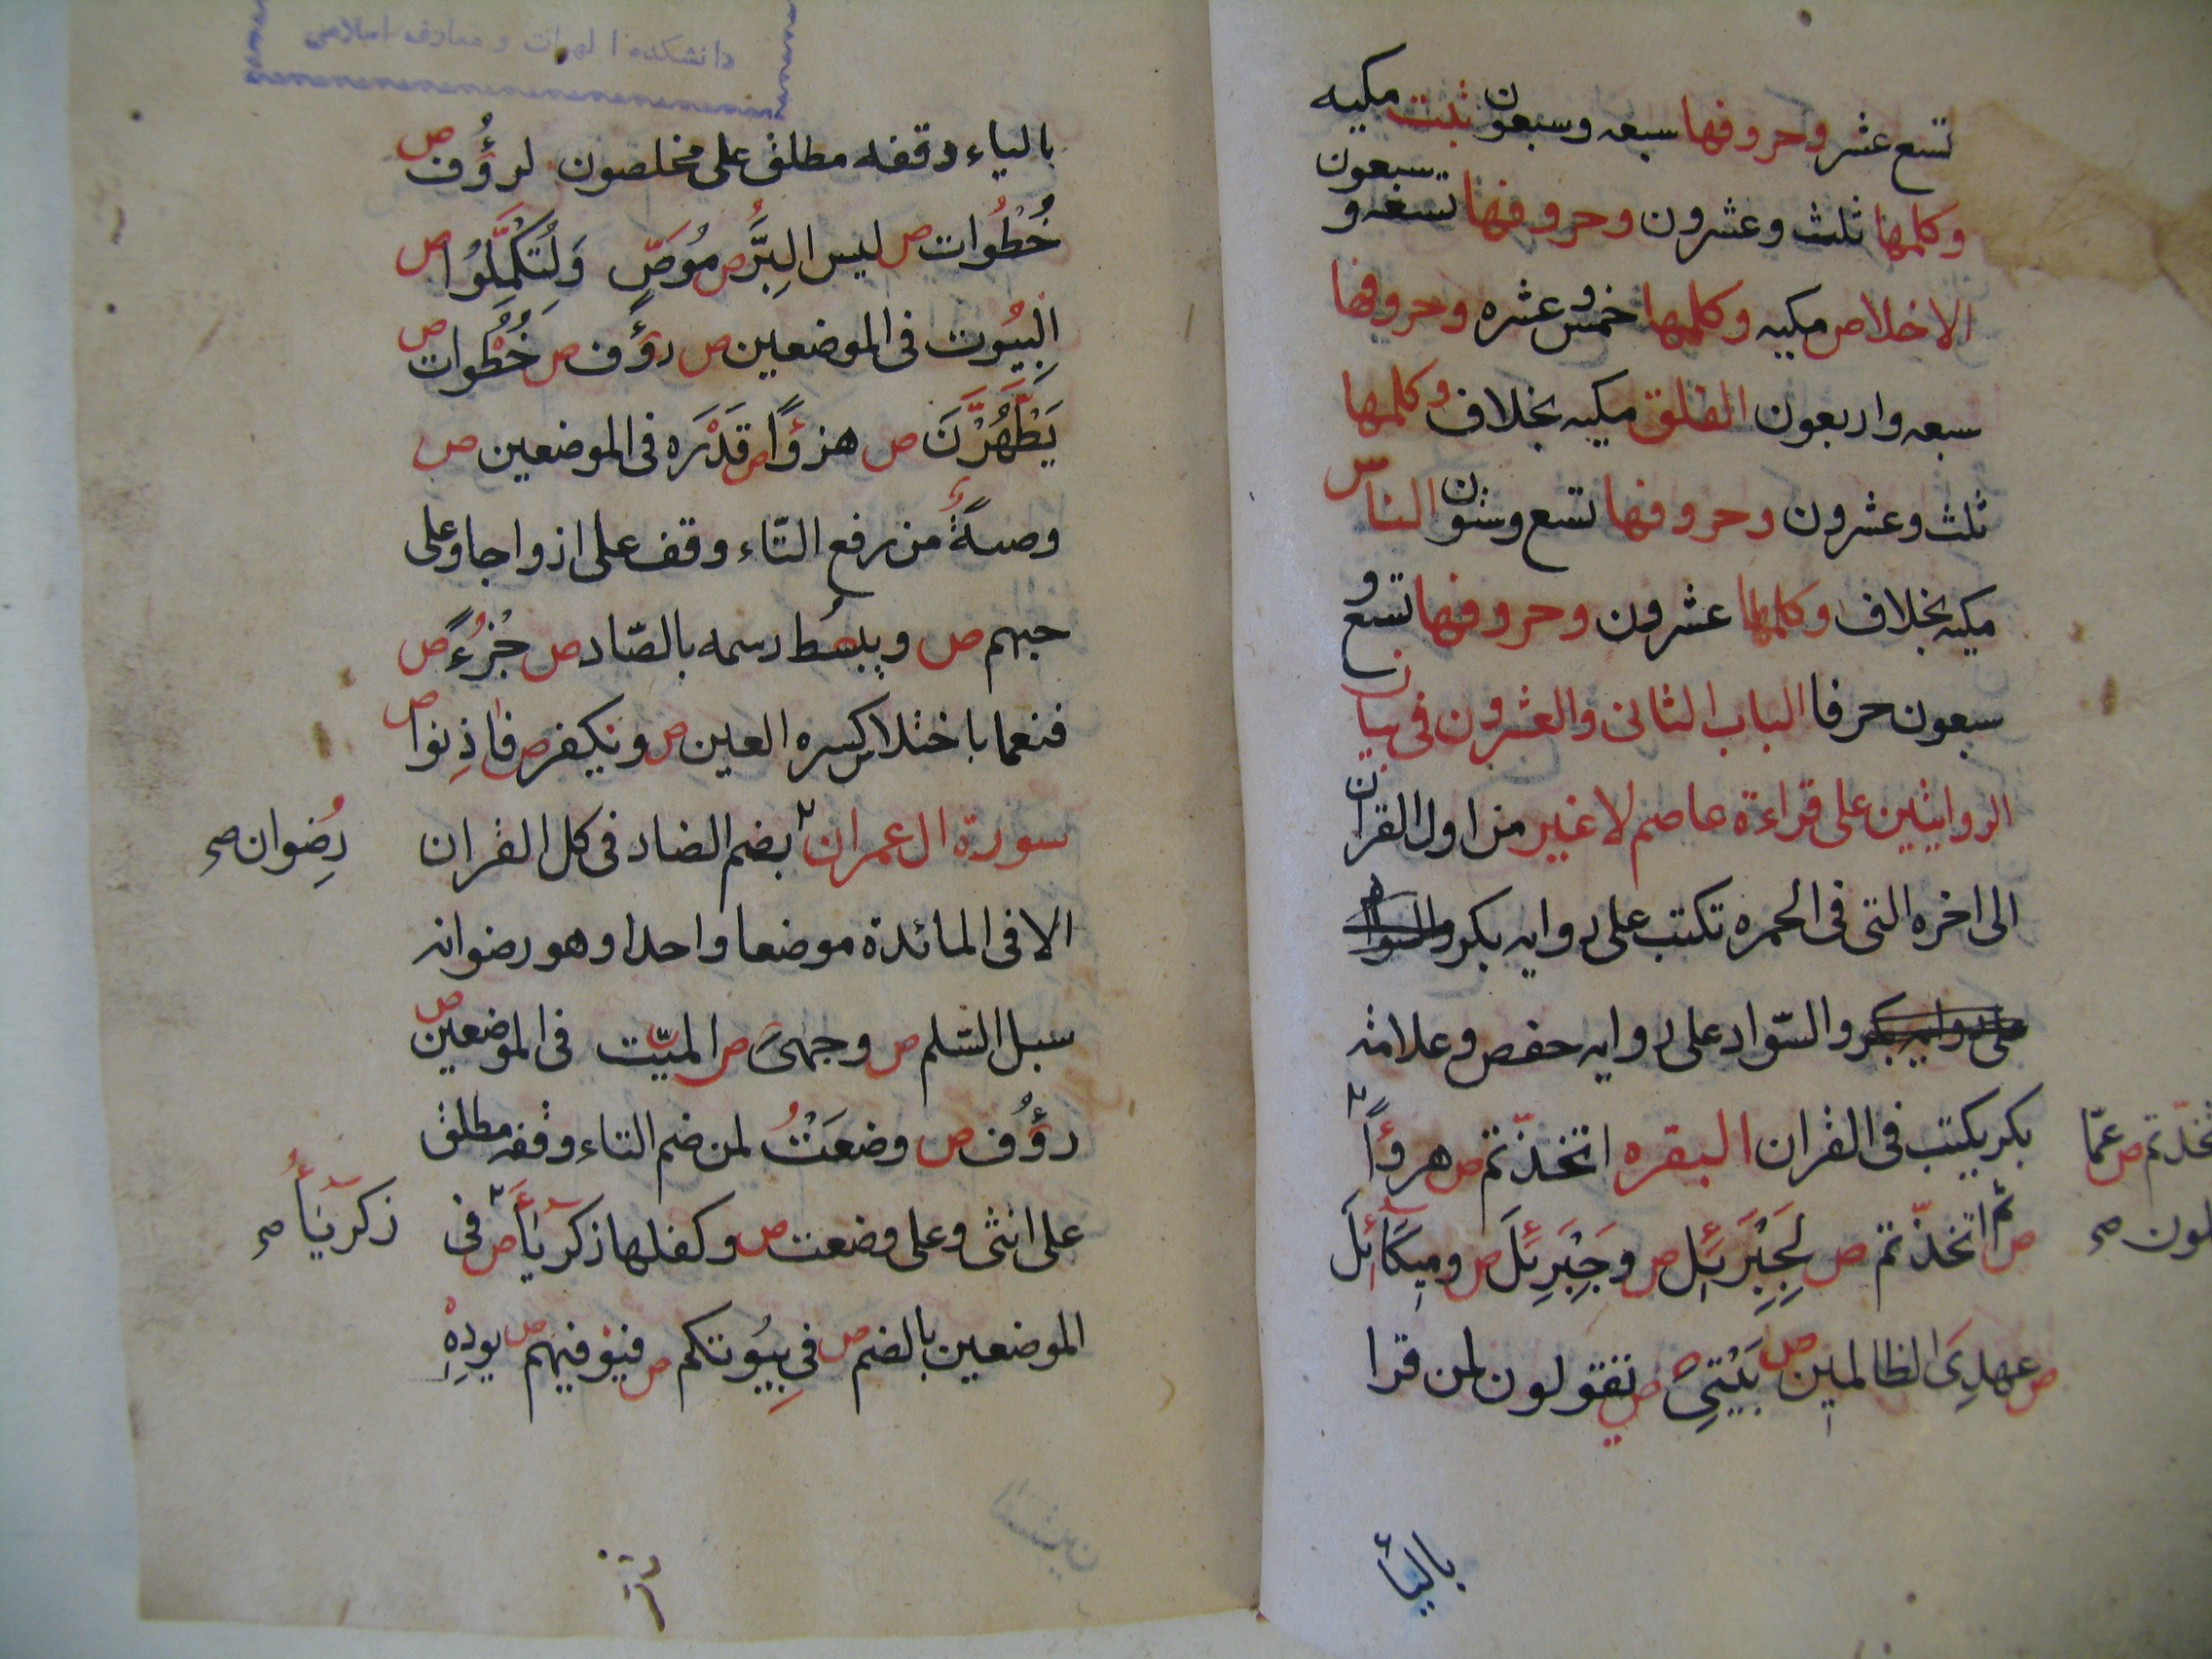 تسع عشر وحروفها سبعه وسبعون تبت مكيه
وكلمها ثلث وعشرون وحروفها تسعه و سبعون
الاخلاص مكيه وكلمها خمس عشره وحروفها
سبعه واربعون الفلق مكيه بخلاف وكلمها
ثلث وعشرون وحروفها تسع وستون الناس
مكيه بخلاف وكلمها عشرون وحروفها تسع و
سبعون حرفا الباب الثانى والعشرون فى بيان
الروايتين على قراءة عاصم لا غير من اول القران
الى اخره التى فى الحمره تكتب على روايه بكر والسواد
على روايه بكر والسّواد على روايه حفص وعلامة
بكر يكتب فى القران البقره اتخذّتم ص هزؤاً
ص ثم اتخذّتم ص لِجَبْرَئِل ص وجَبْرَئِلَ ص وميكآئلَ
ص عهدِىَ الظالمين ص بَيْتِىْ ص تقولون لمن قرا
تخذّتم ص عمّا
لون صح
بالياء
دانشكده الهيات و معارف اسلامى
بالياء وقفه مطلق على مخلصون لرؤُف ص
خُطْوات ص ليس البِرُّ ص مُوَصٍّ وَلِتُكَمِّلُوا ص
البِيُوت فى الموضعين ص رؤُف ص خُطْوات ص
يَطَّهَّرْنَ ص هزؤًا ص قَدْرَه فى الموضعين ص
وصيةً من رفع التّاء وقف على ازواجا وعلى
حبهم ص ويبسط رسمه بالصّاد ص جُزُءً ص
فنعما باختلاس كسره العين ص ونكفر ص فاذِنوا ص
سورة ال عمران بضم الضاد فى كل القران
رِضُوان صح
الا فى المائدة موضعا واحدا وهو رضوانه
سبل السّلم ص وجهىَ ص الميّت فى الموضعين ص
رؤُف ص وضعَتُْ لمن ضم التاء وقفه مطلق
على انثى وعلى وضعت ص وكفلها زكريآءَ ص فى
زكريآءُ صح
الموضعين بالضم ص فى بِيُوتكم ص فنوفيهم ص يودِهِْ